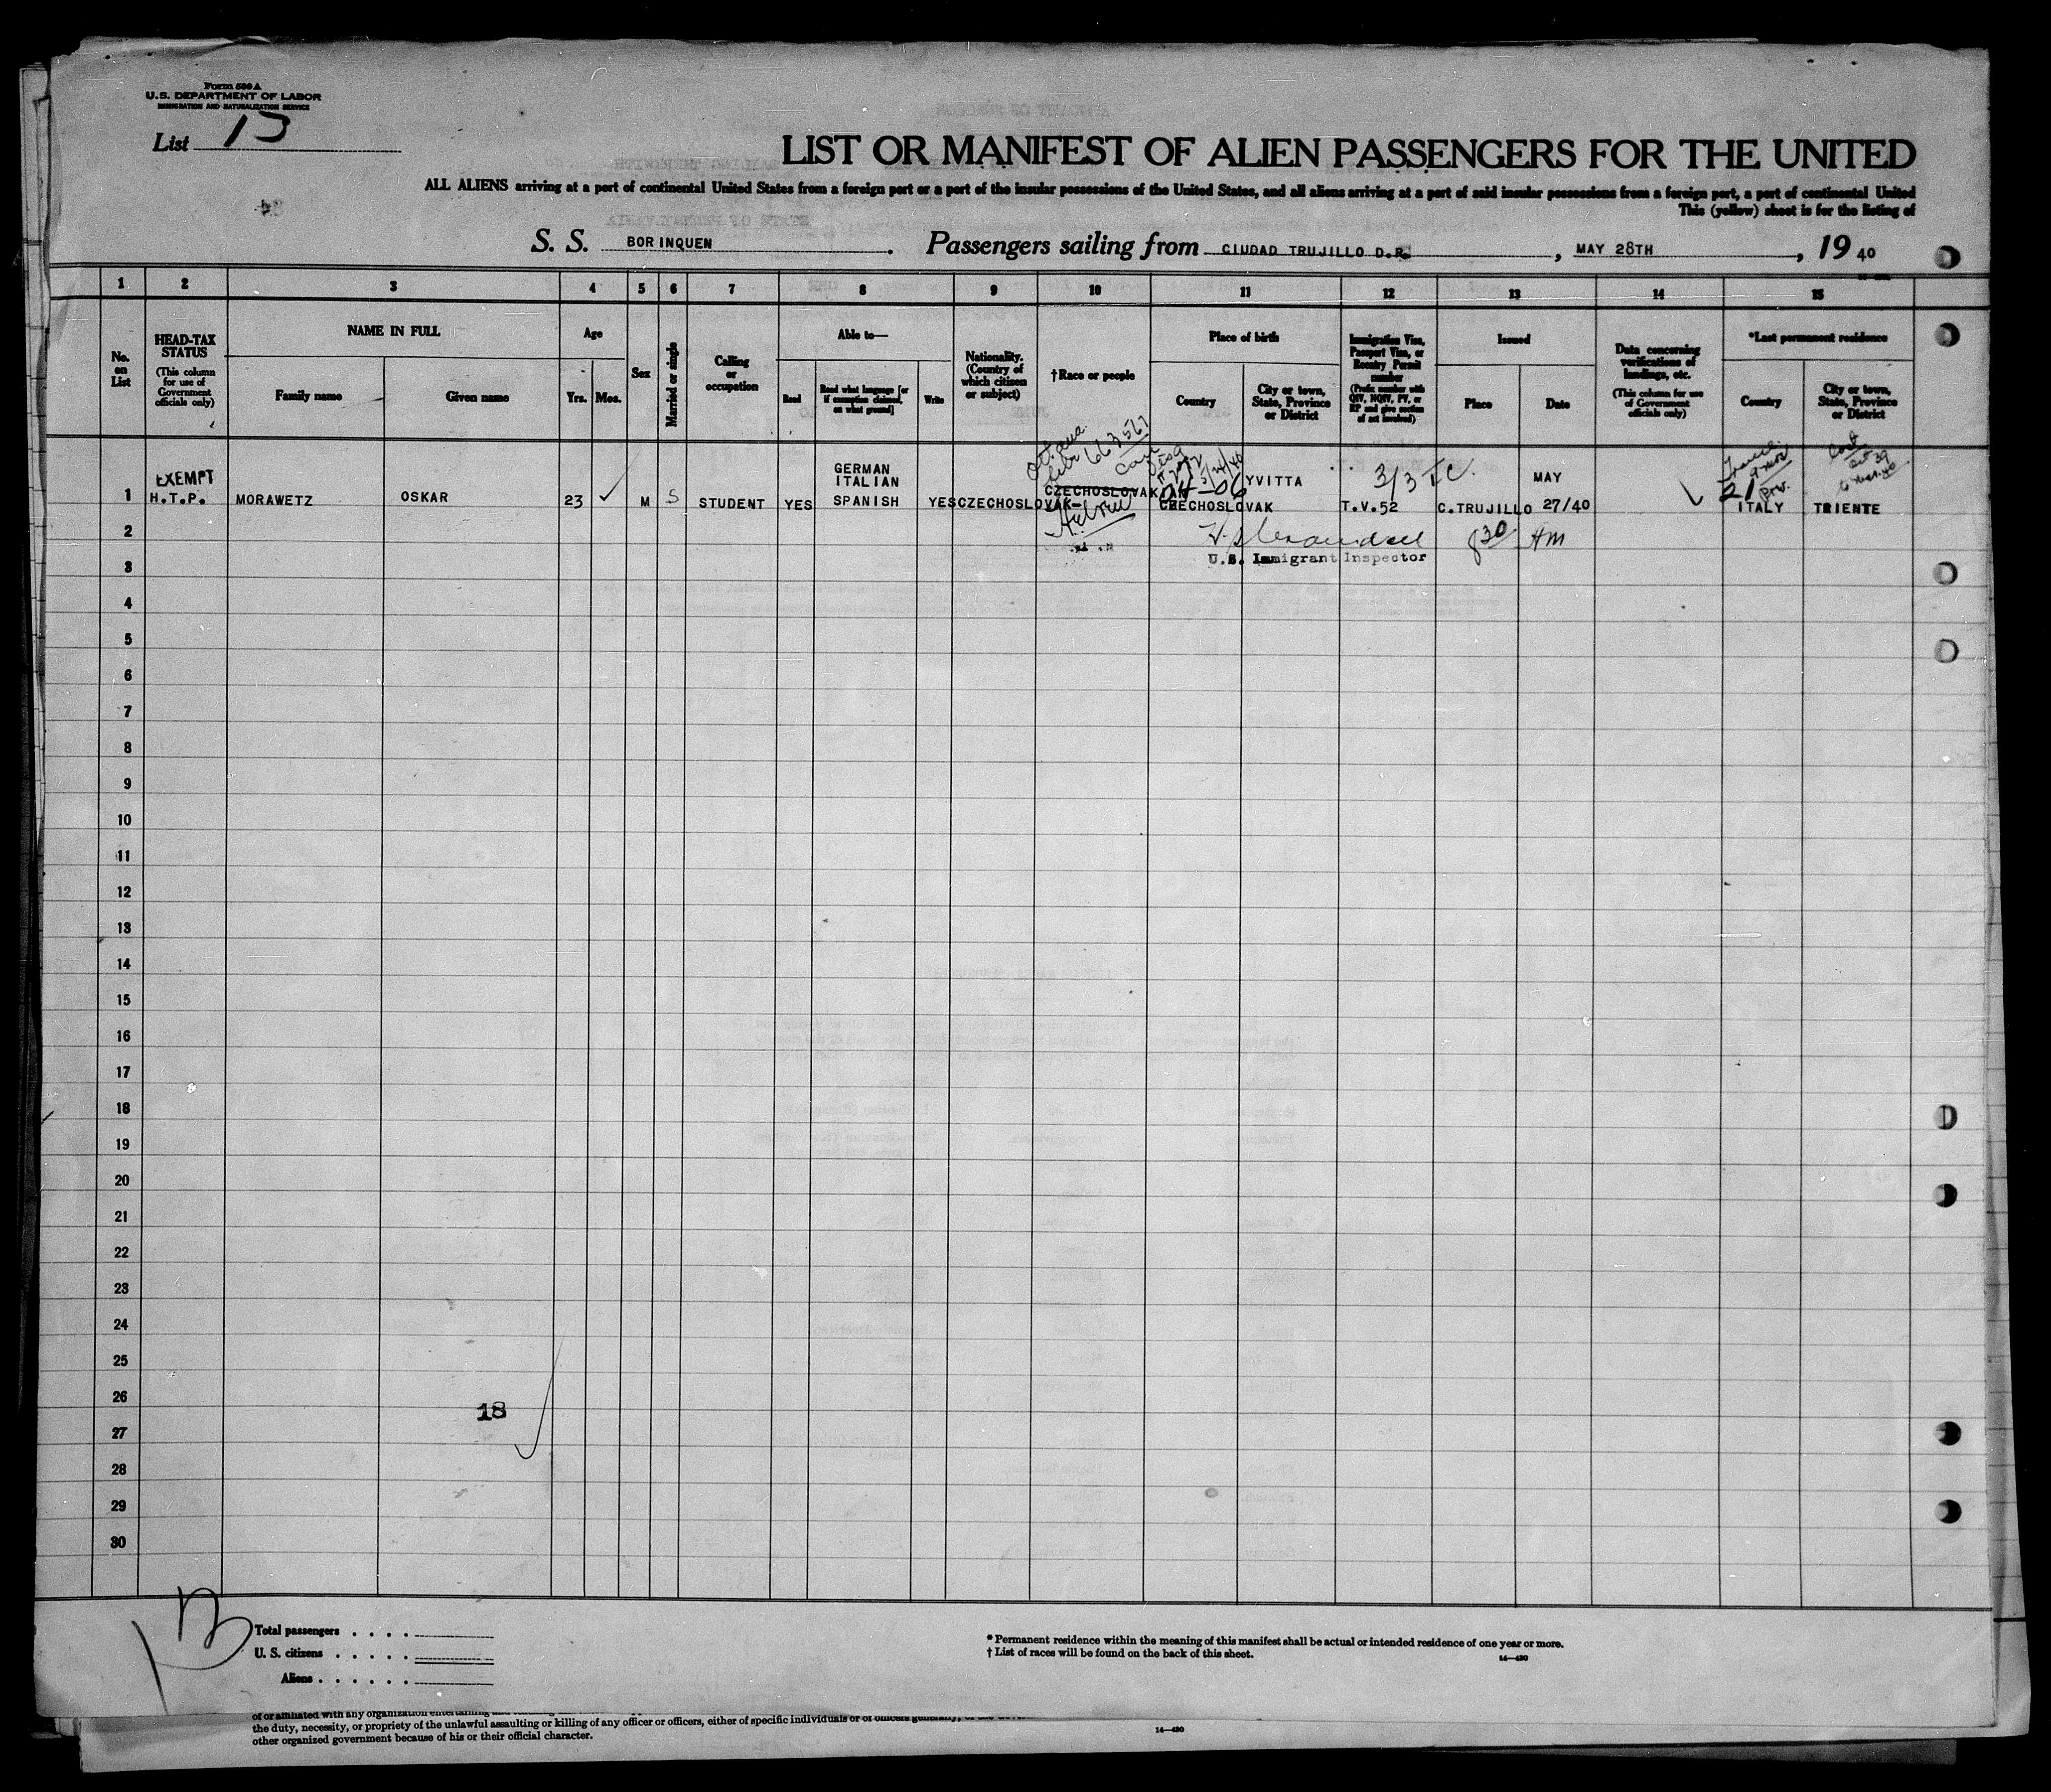 Form 500 A
U.S. DEPARTMENT OF LABOR
IMMIGRATION AND NATURALIZATION SERVICE
List 13
LIST OR MANIFEST OF ALIEN PASSENGERS FOR THE UNITED
ALL ALIENS arriving at a port of continental United States from a foreign port or a port of the insular possessions of the United States, and all aliens arriving at a port of said insular possessions from a foreign port, a port of continental United
This (yellow) sheet is for the listing of
S. S. BORINQUEN . Passengers sailing from CIUDAD TRUJILLO D.R. , MAY 28TH , 19 40
1 2 3 4 5 6 7 8 9 10 11 12 13 14 15
No. on List
HEAD-TAX STATUS
(This column for use of Government officials only)
NAME IN FULL
Family name
Given name
Age
Yrs.
Mos.
Sex
Married or single
Calling or occupation
Able to—
Read
Read what language [or if exemption claimed, on what ground]
Write
Nationality. (Country of which citizen or subject)
†Race or people
Place of birth
Country
City or town, State, Province or District
Immigration Visa, Passport Visa, or Reentry Permit number
(Prefix number with QIV, NQIV, PV, or RP and give section of act involved)
Issued
Place
Date
Data concerning verifications of landings, etc.
(This column for use of Government officials only)
*Last permanent residence
Country
City or town, State, Province or District
EXEMPT
H.T.P.
1 MORAWETZ OSKAR 23 M S STUDENT YES
GERMAN
ITALIAN
SPANISH
YES CZECHOSLOVAK-
CZECHOSLOVAKIAN
Hebrew
CZECHOSLOVAK
YVITTA
3/3 IC
T.V.52
C.TRUJILLO
MAY
27/40
21
ITALY
TRIENTE
U.S. Immigrant Inspector
8 30 AM
2
3
4
5
6
7
8
9
10
11
12
13
14
15
16
17
18
19
20
21
22
23
24
25
26
18
27
28
29
30
13
Total passengers . . . .
U. S. citizens . . . . .
Aliens . . . . . .
* Permanent residence within the meaning of this manifest shall be actual or intended residence of one year or more.
† List of races will be found on the back of this sheet.
14—430
the duty, necessity, or propriety of the unlawful assaulting or killing of any officer or officers, either of specific individuals or of officers generally,
other organized government because of his or their official character.
14—430